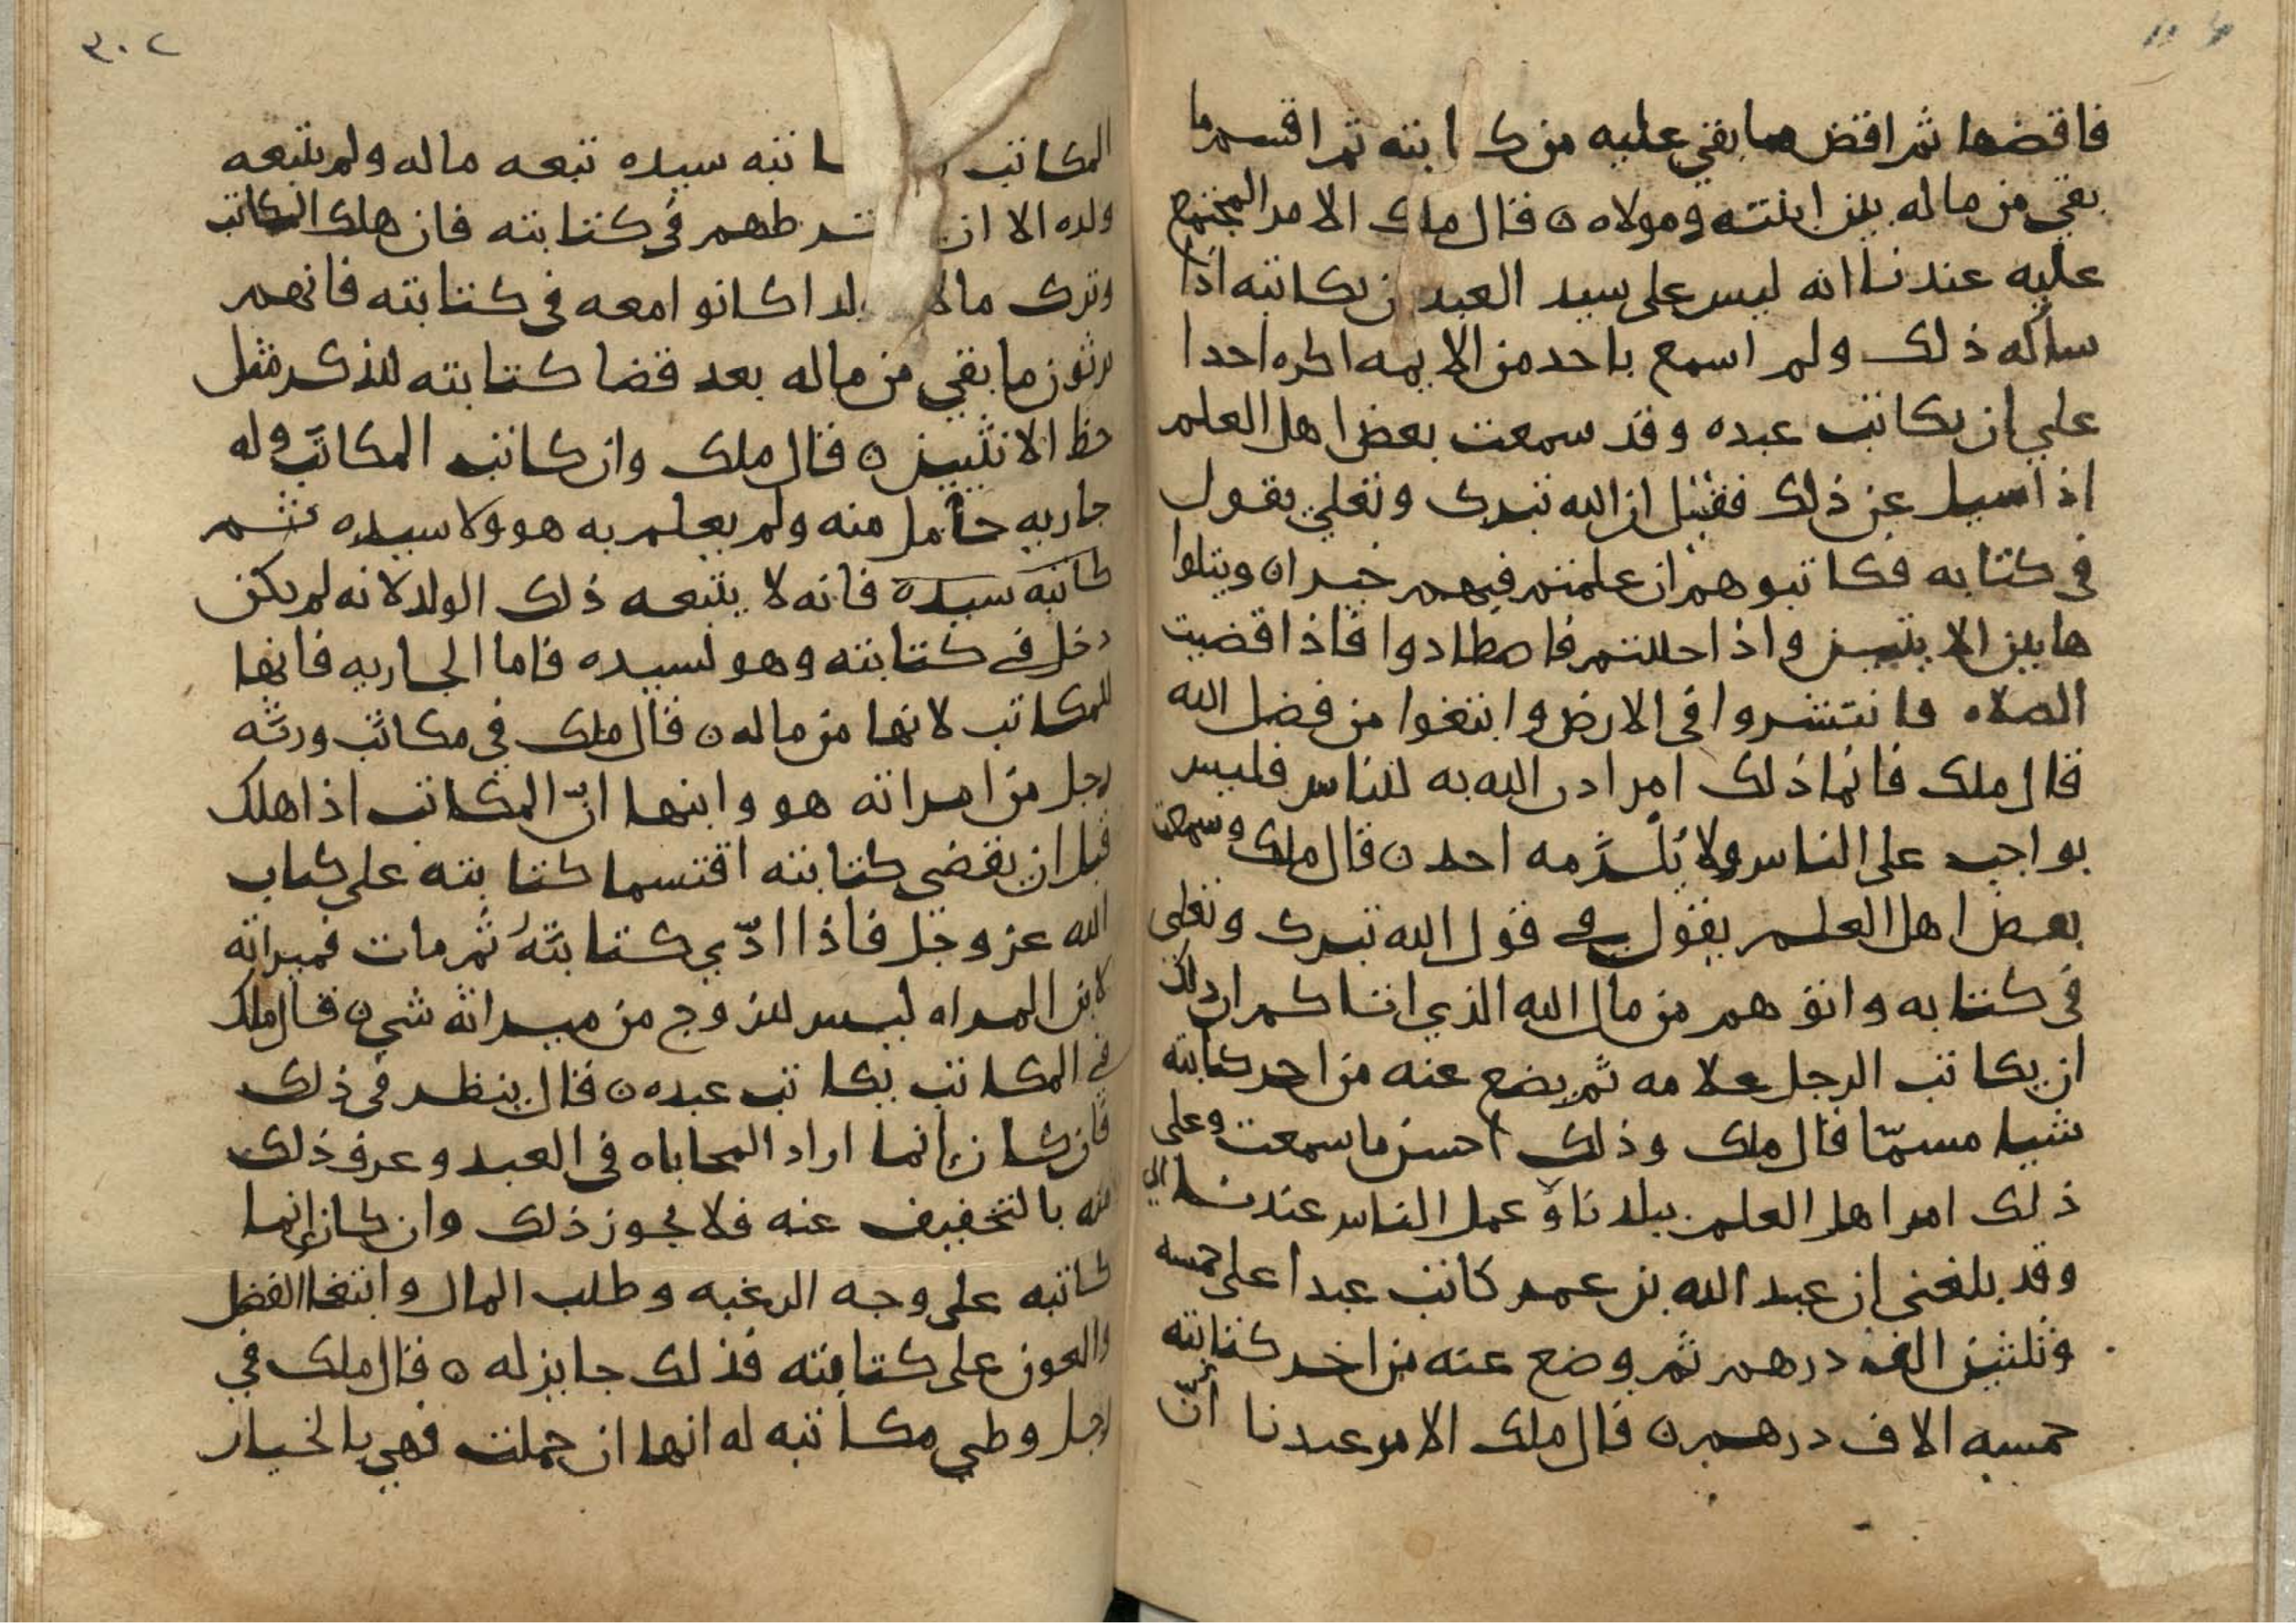 فاقضها ثم اقض ما بقي عليه من كتابته ثم اقسم ما
بقي من ماله بين ابنته ومولاه ٥ قال ملك الامر المجتمع
عليه عندنا انه ليس على سيد العبد ان يكاتبه اذا
سأله ذلك ولم اسمع باحد من الايمه اكره احدا
علي ان يكاتب عبده وقد سمعت بعض اهل العلم
اذا سيل عن ذلك فقيل ان الله تبرك وتعلي يقول
في كتابه فكاتبوهم ان علمتم فيهم خيرا ٥ ويتلوا
هاتين الايتين واذا حللتم فاصطادوا فاذا قضيت
الصلاه فانتشروا في الارض وابتغوا من فضل الله
قال ملك فانما ذلك امر اذن الله به للناس فليس
بواجب على الناس ولا يلزمه احد ٥ قال ملك وسمعت
بعض اهل العلم يقول في قول الله تبرك وتعلى
في كتابه واتوهم من مال الله الذي اتاكم ان ذلك
ان يكاتب الرجل غلامه ثم يضع عنه من اخر كتابته
شيا مسمّا قال ملك وذلك احسن ما سمعت وعلى
ذلك امر اهل العلم ببلدنا وعمل الناس عندنا
وقد بلغني ان عبد الله بن عمر كاتب عبدا على خمسه
وثلثين الف درهم ثم وضع عنه من اخر كتابته
خمسه الاف درهم ٥ قال ملك الامر عندنا انّ
٣٠٢
المكاتب اتبه سيده تبعه ماله ولم يتبعه
ولده الا ان يشترطهم في كتابته فان هلك المكاتب
وترك مالا ولدا كانوا معه في كتابته فانهم
يرثون ما بقي من ماله بعد قضا كتابته للذكر مثل
حظ الانثيين ٥ قال ملك وان كاتب المكاتب وله
جاريه حامل منه ولم يعلم به هو ولا سيده ثم
كاتبه سيده فانه لا يتبعه ذلك الولد لانه لم يكن
دخل في كتابته وهو لسيده فاما الجاريه فانها
للمكاتب لانها من ماله ٥ قال ملك في مكاتب ورثه
رجل من امراته هو وابنها انّ المكاتب اذا هلك
قبل ان يقضي كتابته اقتسما كتابته على كتاب
الله عز وجل فاذا ادّي كتابتهُ ثم مات فميراثه
لابن المراه ليس للزوج من ميراثه شي ٥ قال ملك
في المكاتب يكاتب عبده ٥ قال ينظر في ذلك
فان كان انما اراد المحاباه في العبد وعرف ذلك
منه بالتخفيف عنه فلا يجوز ذلك وان كان انما
كاتبه على وجه الرغبه وطلب المال وابتغا الفضل
والعون على كتابته فذلك جايز له ٥ قال ملك في
رجل وطي مكاتبه له انها ان حملت فهي بالخيار